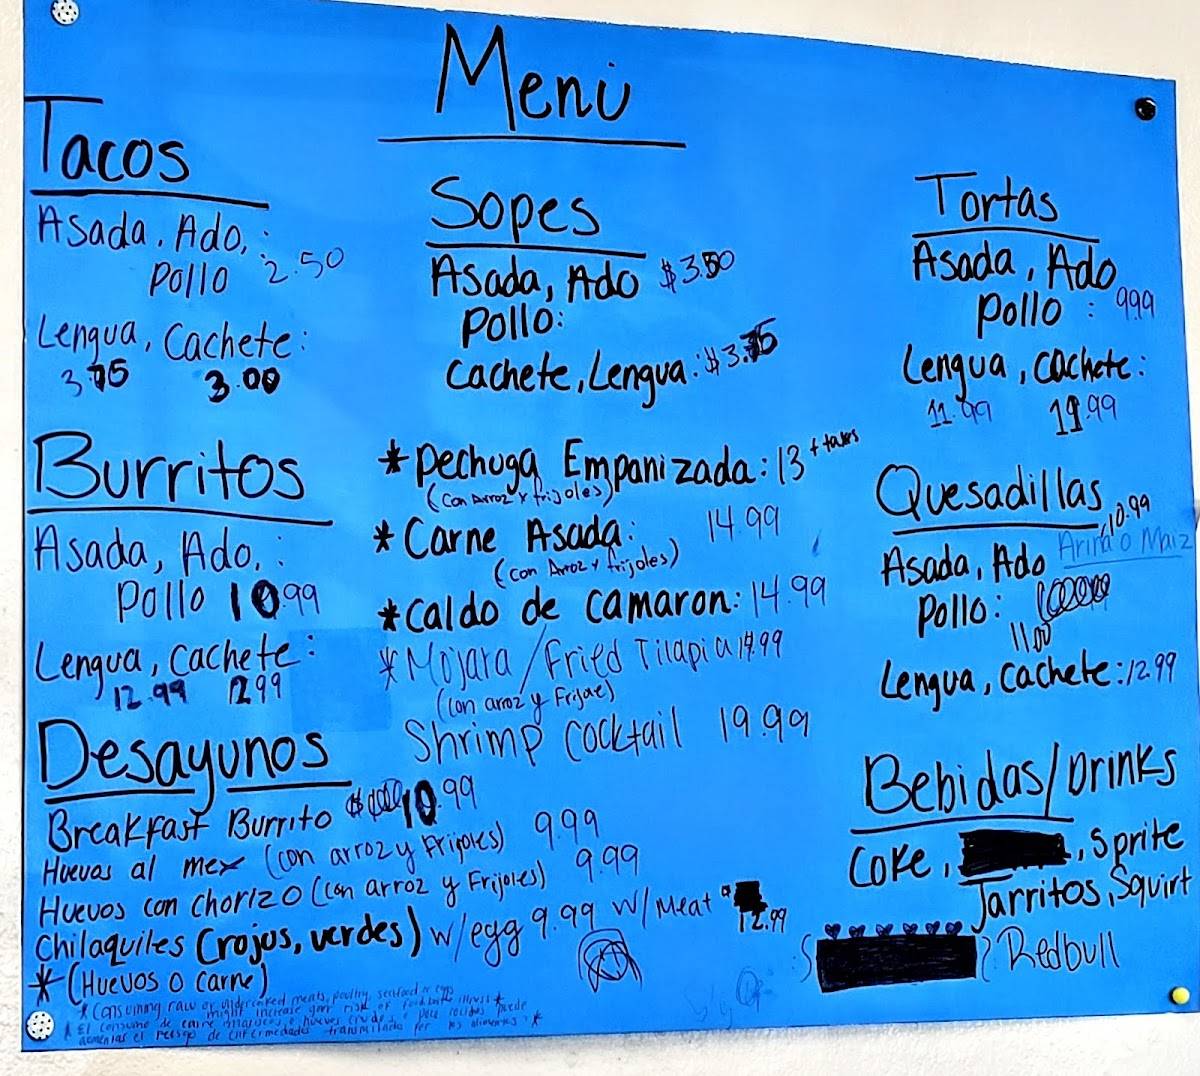 Menu
Tacos
Asada, Ado, :
Pollo 2.50
Lengua, Cachete:
3.75 3.00
Burritos
Asada, Ado, :
Pollo 10.99
Lengua, Cachete:
12.99 12.99
Desayunos
Breakfast Burrito 10.99
Huevos al mex (con arroz y Frijoles) 9.99
Huevos con chorizo (con arroz y Frijoles) 9.99
Chilaquiles (rojos, verdes) w/egg 9.99 w/Meat 12.99
* (Huevos o carne)
* Consuming raw or undercooked meats, poultry, seafood or eggs
might increase your risk of foodborne illness *
Sopes
Asada, Ado $3.50
Pollo:
Cachete, Lengua: $3.75
* Pechuga Empanizada: 13 + taxes
(con Arroz y frijoles)
* Carne Asada: 14.99
(con Arroz y frijoles)
* Caldo de camaron: 14.99
* Mojara/Fried Tilapia 14.99
(con arroz y Frijole)
Shrimp Cocktail 19.99
Tortas
Asada, Ado
Pollo : 9.99
Lengua, Cachete:
11.99 11.99
Quesadillas
10.99
Arina o Maiz
Asada, Ado
Pollo:
11.00
Lengua, Cachete: 12.99
Bebidas/Drinks
Coke, , Sprite
Jarritos, Squirt
Redbull